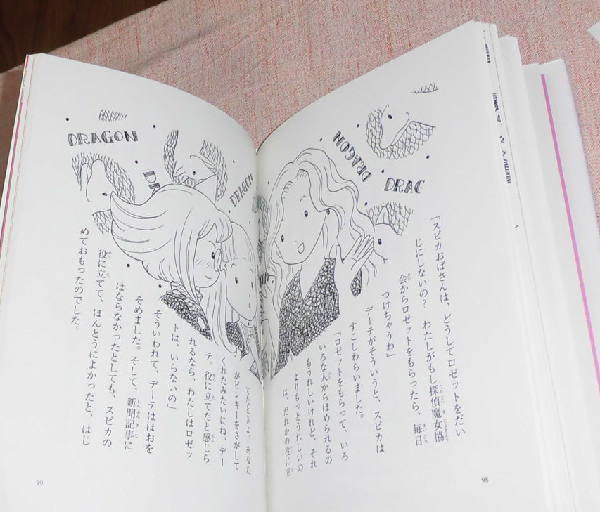 DRAGON
DRAGON
DRAGON
DRAC
「スピカおばさんは、どうしてロゼットをだい
じにしないの？　わたしがもし探偵魔女協
会からロゼットをもらったら、毎日
つけちゃうわ」
デーテがそういうと、スピカは
すこしわらいました。
「ロゼットをもらって、いろ
いろな人からほめられるの
もうれしいけれど、それ
よりもっとうれしいの
テ。役に立てたと感じら
れるなら、わたしはロゼッ
トは、いらないの」
そういわれて、デーテはほおを
そめました。そして、新聞記事に
はならなかったとしても、スピカの
役に立てて、ほんとうによかったと、はじ
めておもったのでした。
98
99